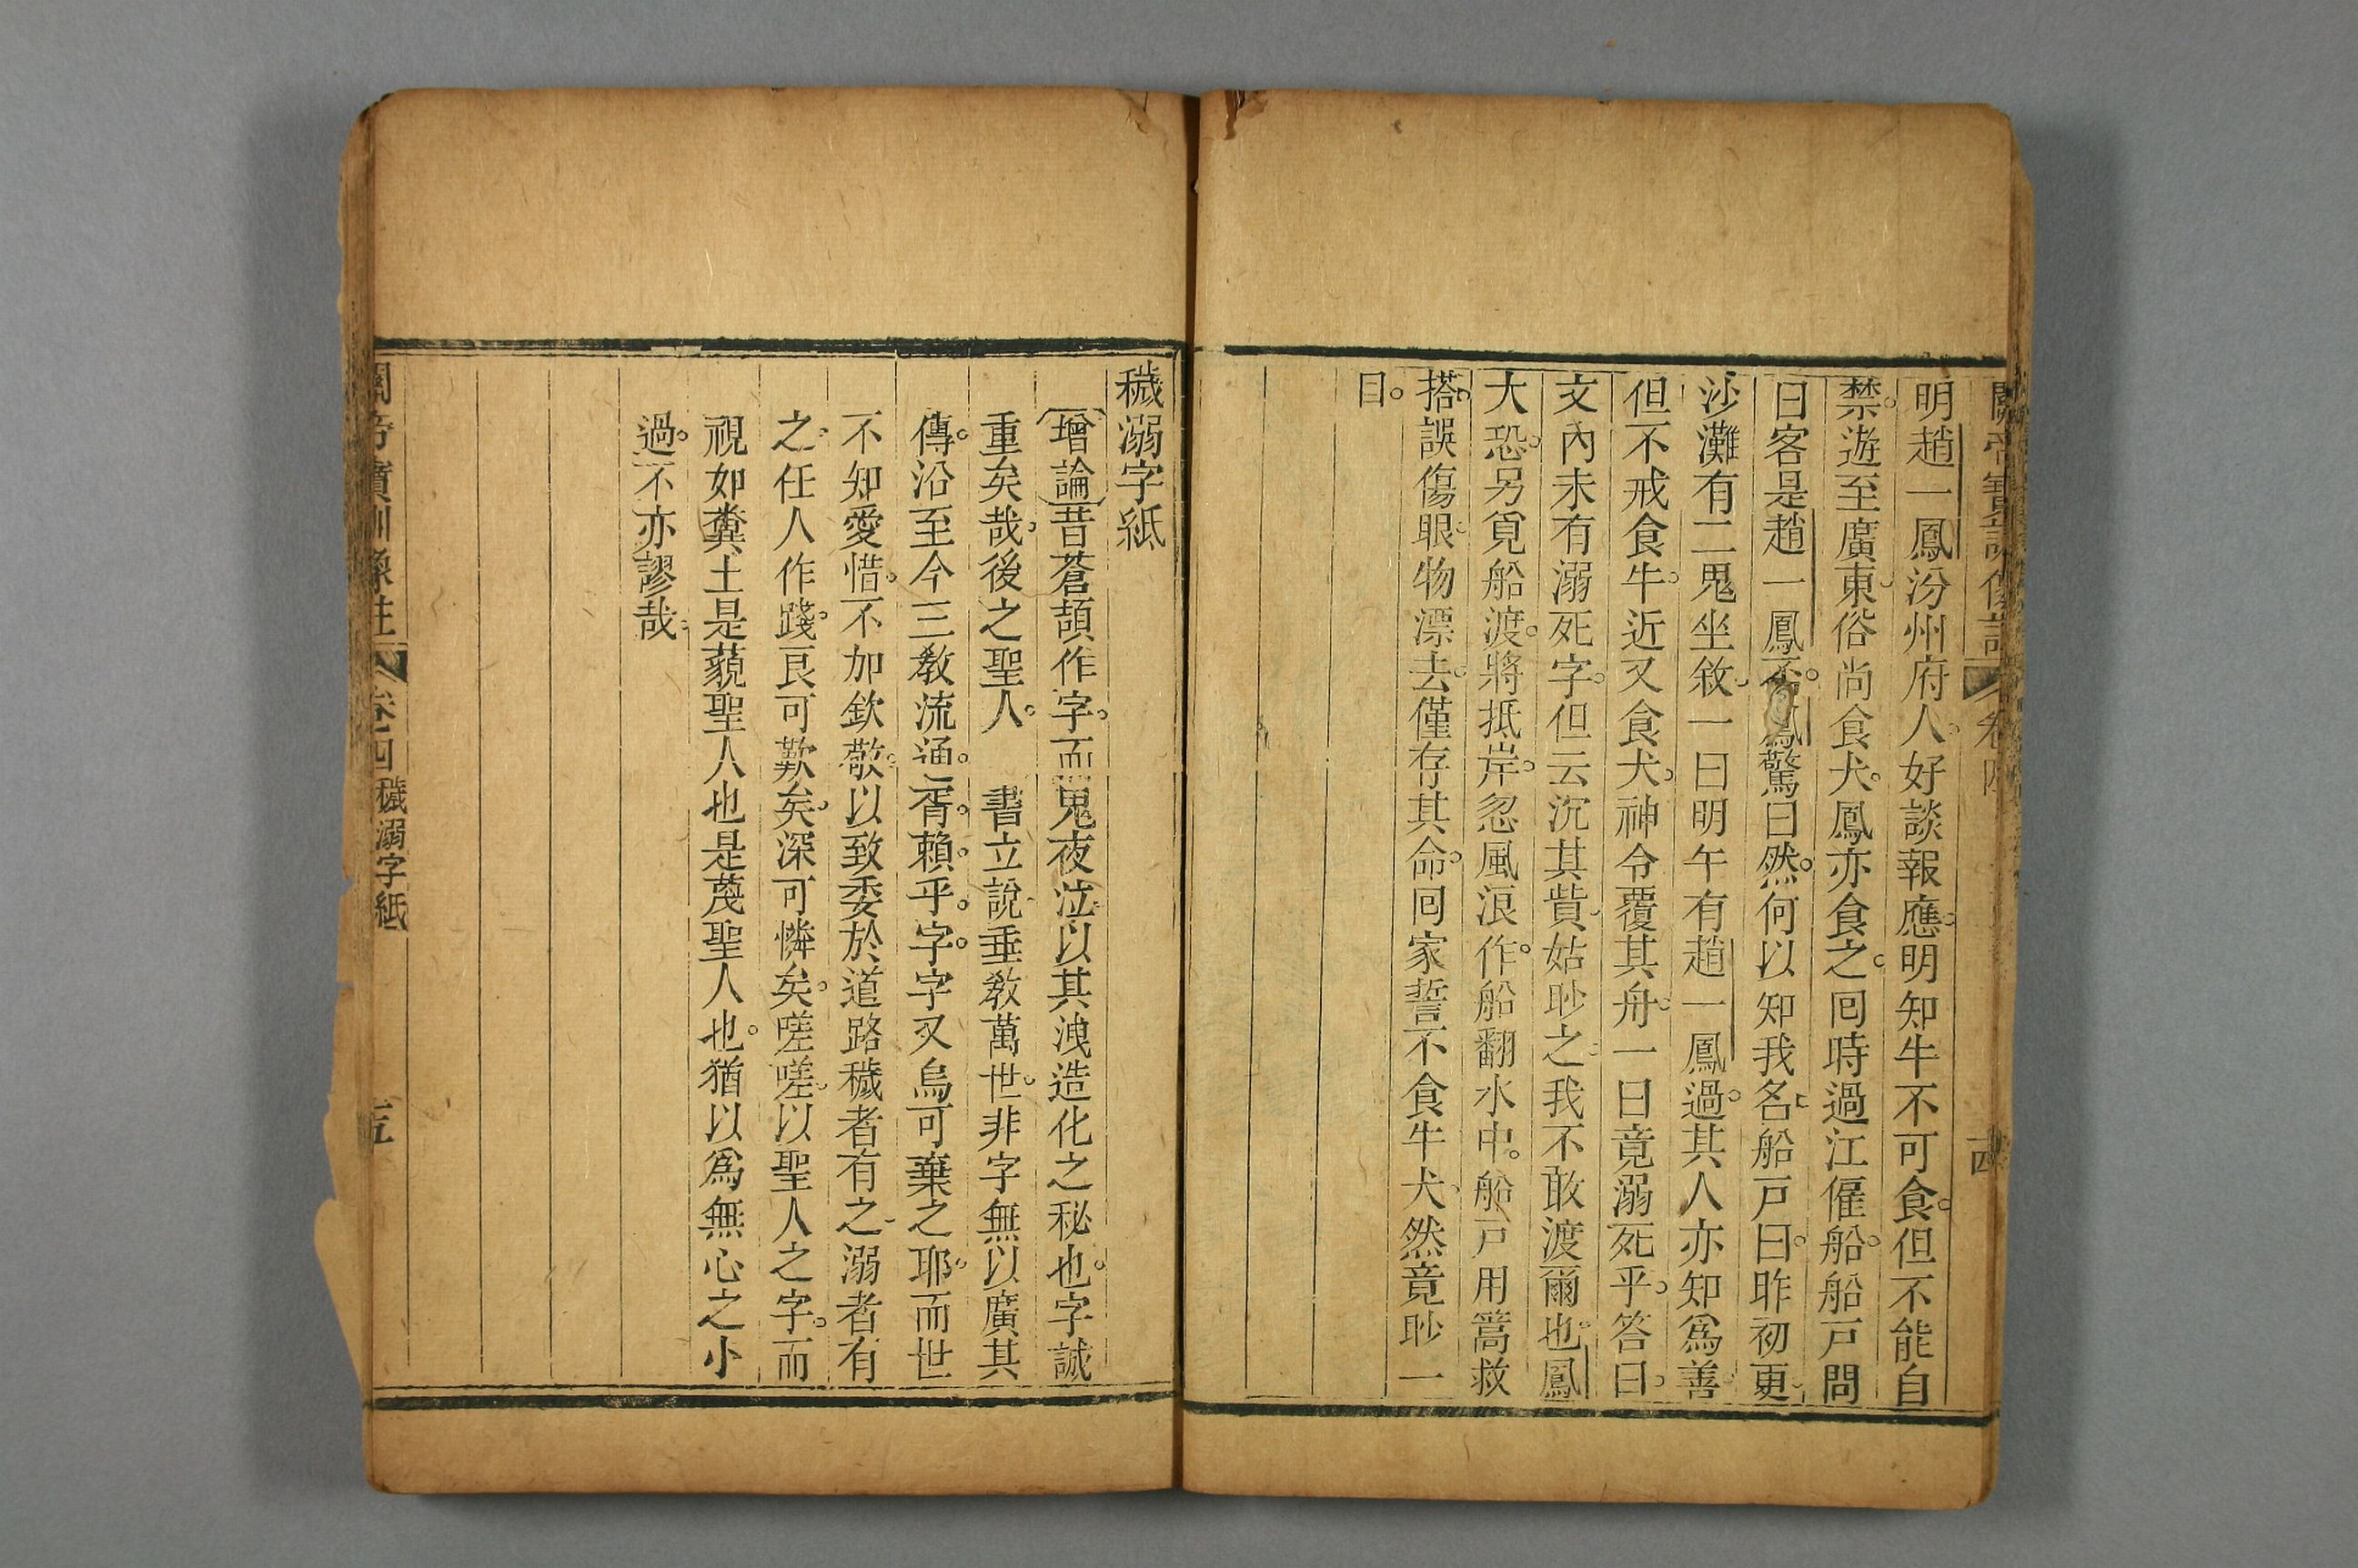 明趙一鳳汾州府人好談報應明知牛不可食但不能自
禁遊至廣東俗尚食犬鳳亦食之囘時過江僱船船戸問
曰客是趙一鳳否鳳驚曰然何以知我名船戸曰昨初更
沙灘有二鬼坐敘一曰明午有趙一鳳過其人亦知爲善
但不戒食牛近又食犬神令覆其舟一曰竟溺死乎答曰
文內未有溺死字但云沉其貲姑眇之我不敢渡爾也鳳
大恐另覓船渡將抵岸忽風浪作船翻水中船戸用篙救
搭誤傷眼物漂去僅存其命囘家誓不食牛犬然竟眇一
目
穢溺字紙
增論昔蒼頡作字而鬼夜泣以其洩造化之秘也字誠
重矣哉後之聖人 書立說垂敎萬世非字無以廣其
傳沿至今三敎流通胥賴乎字字又烏可棄之耶而世
不知愛惜不加欽敬以致委於道路穢者有之溺者有
之任人作踐良可歎矣深可憐矣嗟嗟以聖人之字而
視如糞土是藐聖人也是蔑聖人也猶以爲無心之小
過不亦謬哉
卷四 穢溺字紙